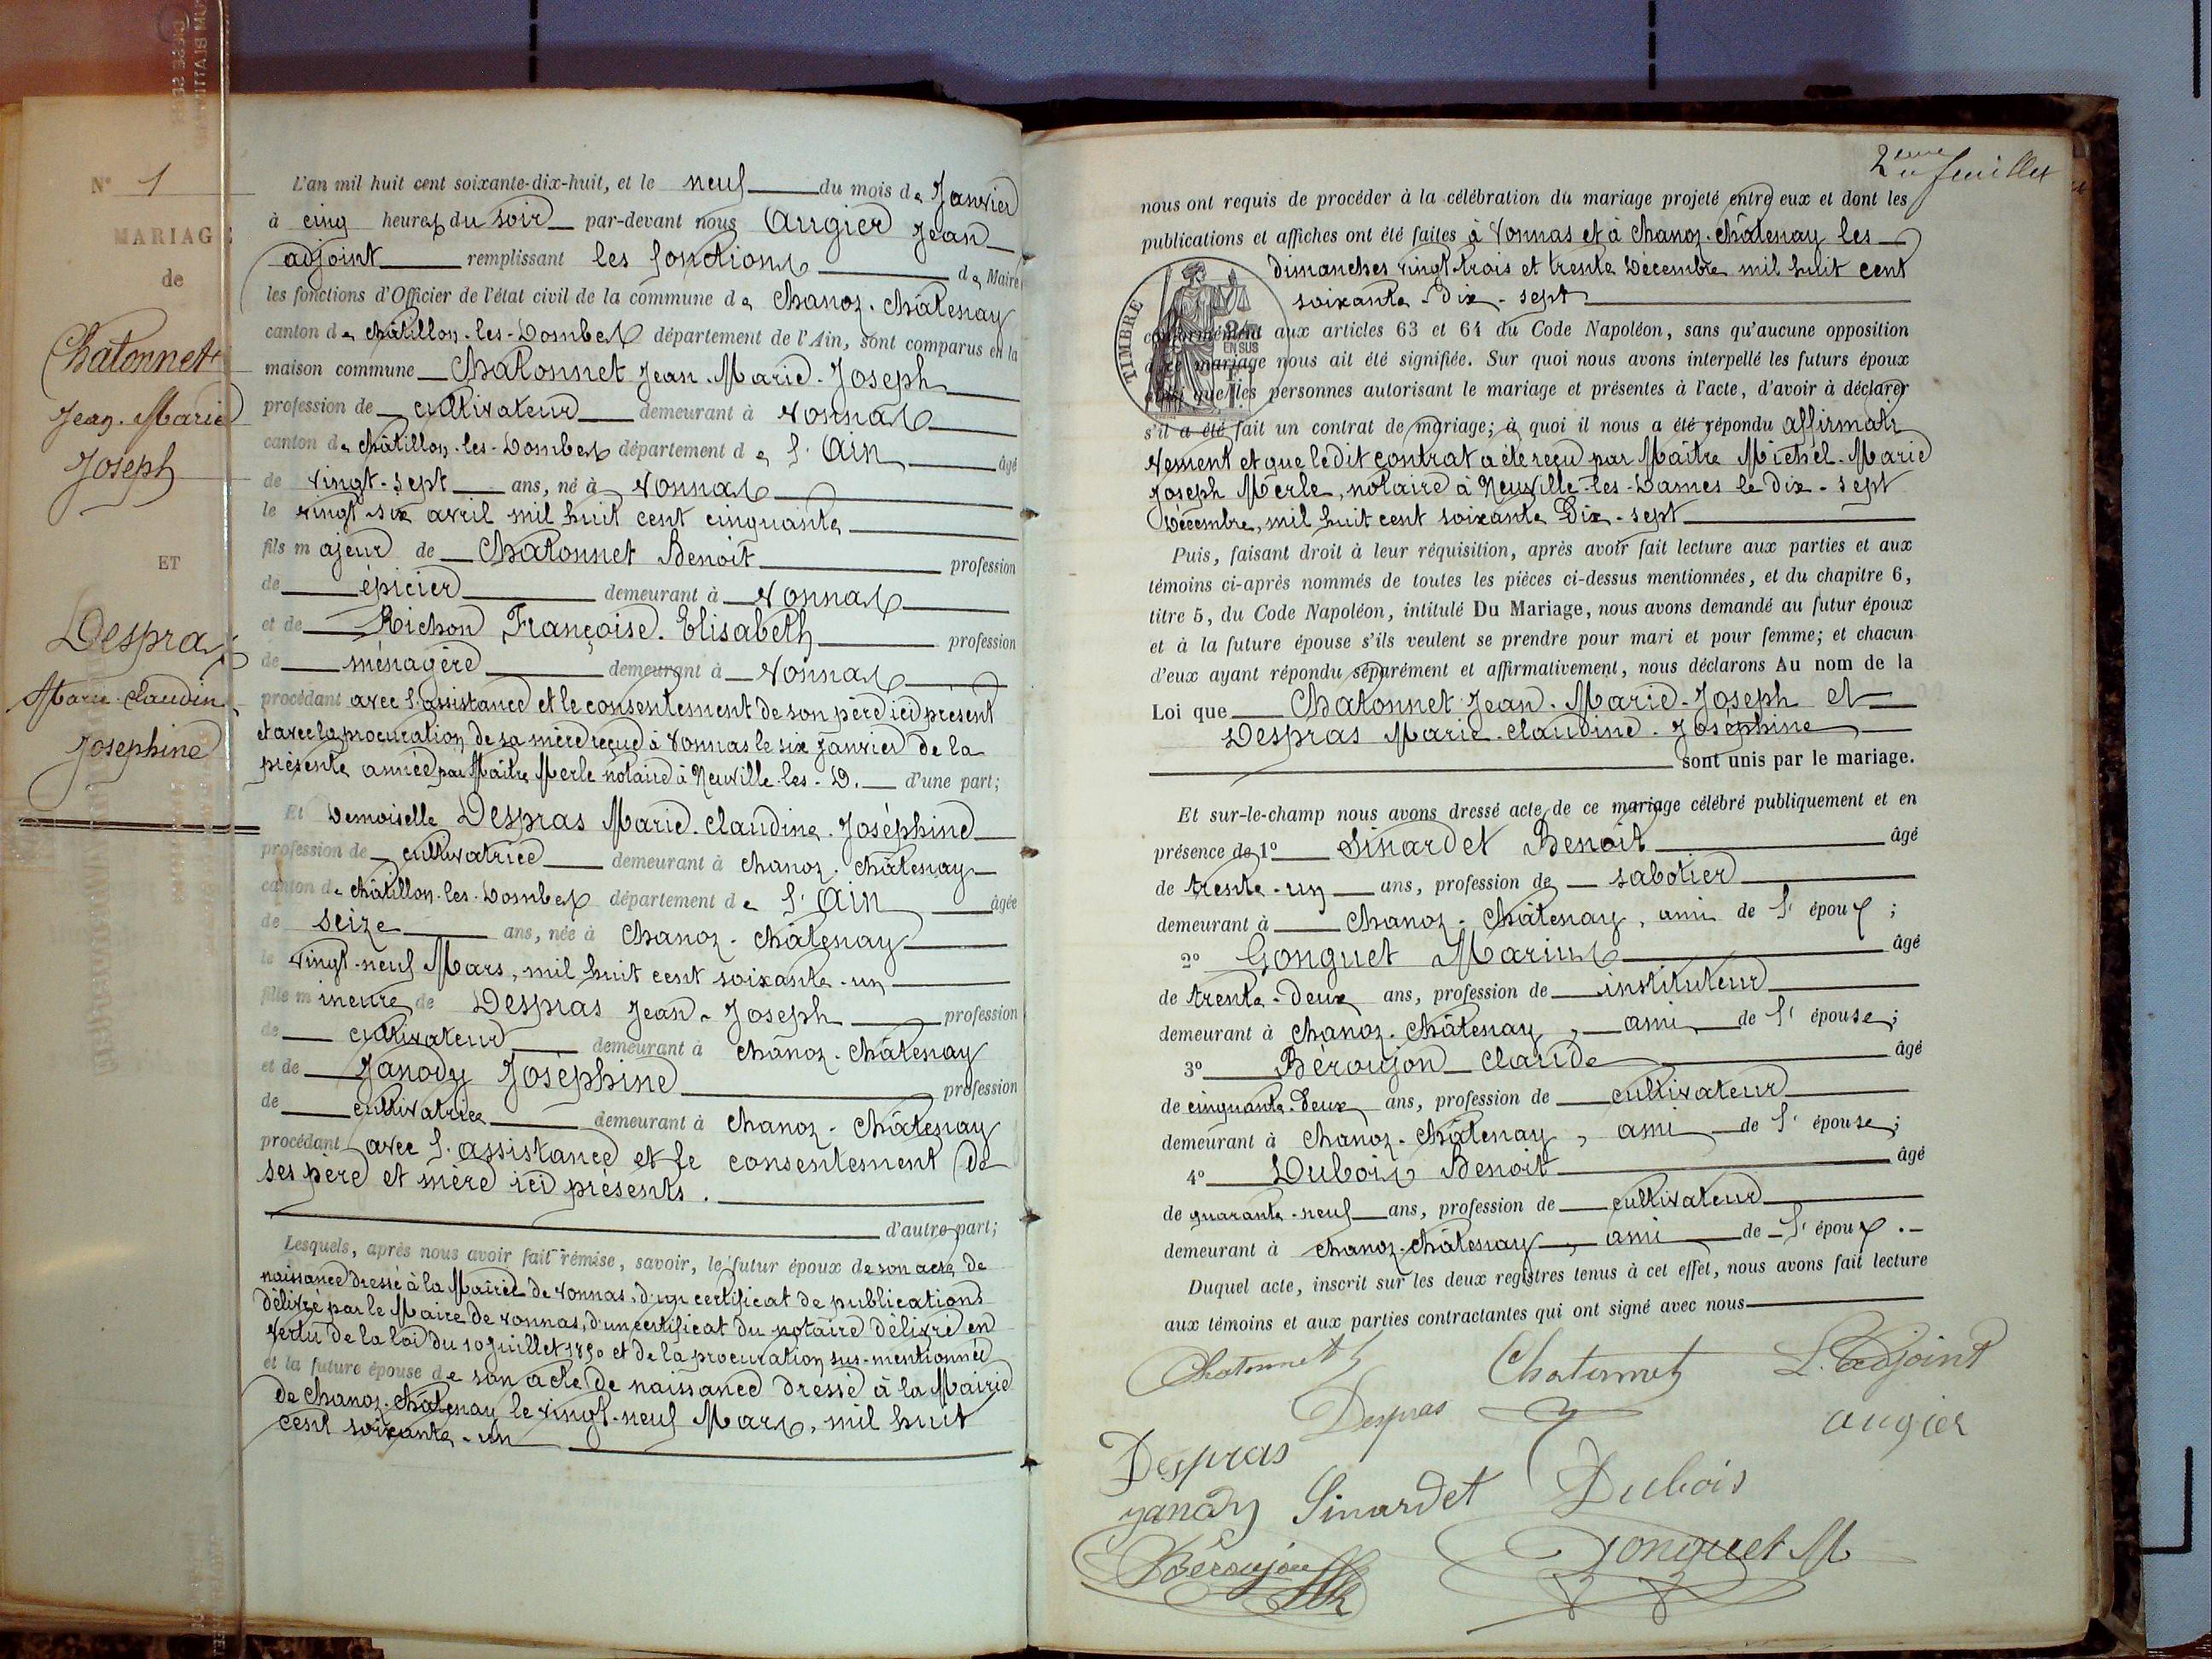 N° 1
MARIAGE
de
Chatonnet
Jean-Marie
Joseph
ET
Despras
Marie-Claudine
Josephine
L'an mil huit cent soixante-dix-huit, et le neuf du mois de Janvier
à cinq heures du soir par-devant nous Augier Jean
adjoint remplissant les fonctions de Maire
les fonctions d'Officier de l'état civil de la commune de Chanoz-Châtenay
canton de Châtillon-les-Dombes département de l'Ain, sont comparus en la
maison commune Chatonnet Jean-Marie-Joseph
profession de cultivateur demeurant à Vonnas
canton de Châtillon-les-Dombes département de l'Ain âgé
de vingt-sept ans, né à Vonnas
le vingt-six avril mil huit cent cinquante
fils majeur de Chatonnet Benoit profession
de épicier demeurant à Vonnas
et de Richon Françoise-Elisabeth profession
de ménagère demeurant à Vonnas
procédant avec l'assistance et le consentement de son père ici présent
et avec la procuration de sa mère reçue à Vonnas le six Janvier de la
présente année par Maître Merle notaire à Neuville-les-D. d'une part;
Et Demoiselle Despras Marie-Claudine-Joséphine
profession de cultivatrice demeurant à Chanoz-Châtenay
canton de Châtillon-les-Dombes département de l'Ain âgée
de seize ans, née à Chanoz-Châtenay
le vingt-neuf Mars, mil huit cent soixante-un
fille mineure de Despras Jean-Joseph profession
de cultivateur demeurant à Chanoz-Châtenay
et de Janody Joséphine profession
de cultivatrice demeurant à Chanoz-Châtenay
procédant avec l'assistance et le consentement de
ses père et mère ici présents.
d'autre part;
Lesquels, après nous avoir fait remise, savoir, le futur époux de son acte de
naissance dressé à la Mairie de Vonnas, d'un certificat de publications
délivré par le Maire de Vonnas, d'un certificat du notaire délivré en
vertu de la loi du 10 Juillet 1850 et de la procuration sus-mentionnée
et la future épouse de son acte de naissance dressé à la Mairie
de Chanoz-Châtenay le vingt-neuf Mars, mil huit
cent soixante-un
2eme feuillet
nous ont requis de procéder à la célébration du mariage projeté entre eux et dont les
publications et affiches ont été faites à Vonnas et à Chanoz-Châtenay les
dimanches vingt-trois et trente Décembre mil huit cent
soixante-dix-sept
TIMBRE
EN SUS
conformément aux articles 63 et 64 du Code Napoléon, sans qu'aucune opposition
à ce mariage nous ait été signifiée. Sur quoi nous avons interpellé les futurs époux
ainsi que les personnes autorisant le mariage et présentes à l'acte, d'avoir à déclarer
s'il a été fait un contrat de mariage; à quoi il nous a été répondu affirmati
vement et que ledit contrat a été reçu par Maître Michel-Marie
Joseph Merle, notaire à Neuville-les-Dames le dix-sept
Décembre, mil huit cent soixante Dix-sept
Puis, faisant droit à leur réquisition, après avoir fait lecture aux parties et aux
témoins ci-après nommés de toutes les pièces ci-dessus mentionnées, et du chapitre 6,
titre 5, du Code Napoléon, intitulé Du Mariage, nous avons demandé au futur époux
et à la future épouse s'ils veulent se prendre pour mari et pour femme; et chacun
d'eux ayant répondu séparément et affirmativement, nous déclarons Au nom de la
Loi que Chatonnet Jean-Marie-Joseph et
Despras Marie-Claudine-Joséphine
sont unis par le mariage.
Et sur-le-champ nous avons dressé acte de ce mariage célébré publiquement et en
présence de 1° Sinardet Benoit âgé
de trente-un ans, profession de sabotier
demeurant à Chanoz-Châtenay, ami de l'époux;
2° Gonguet Marius âgé
de trente-deux ans, profession de instituteur
demeurant à Chanoz-Châtenay, ami de l'épouse;
3° Béroujon Claude âgé
de cinquante-deux ans, profession de cultivateur
demeurant à Chanoz-Châtenay, ami de l'épouse;
4° Dubois Benoit âgé
de quarante-neuf ans, profession de cultivateur
demeurant à Chanoz-Châtenay, ami de l'époux.
Duquel acte, inscrit sur les deux registres tenus à cet effet, nous avons fait lecture
aux témoins et aux parties contractantes qui ont signé avec nous
Chatonnet Chatonnet L'adjoint
Despras Augier
Despras
Janody Sinardet Dubois
Béroujon Gonguet M